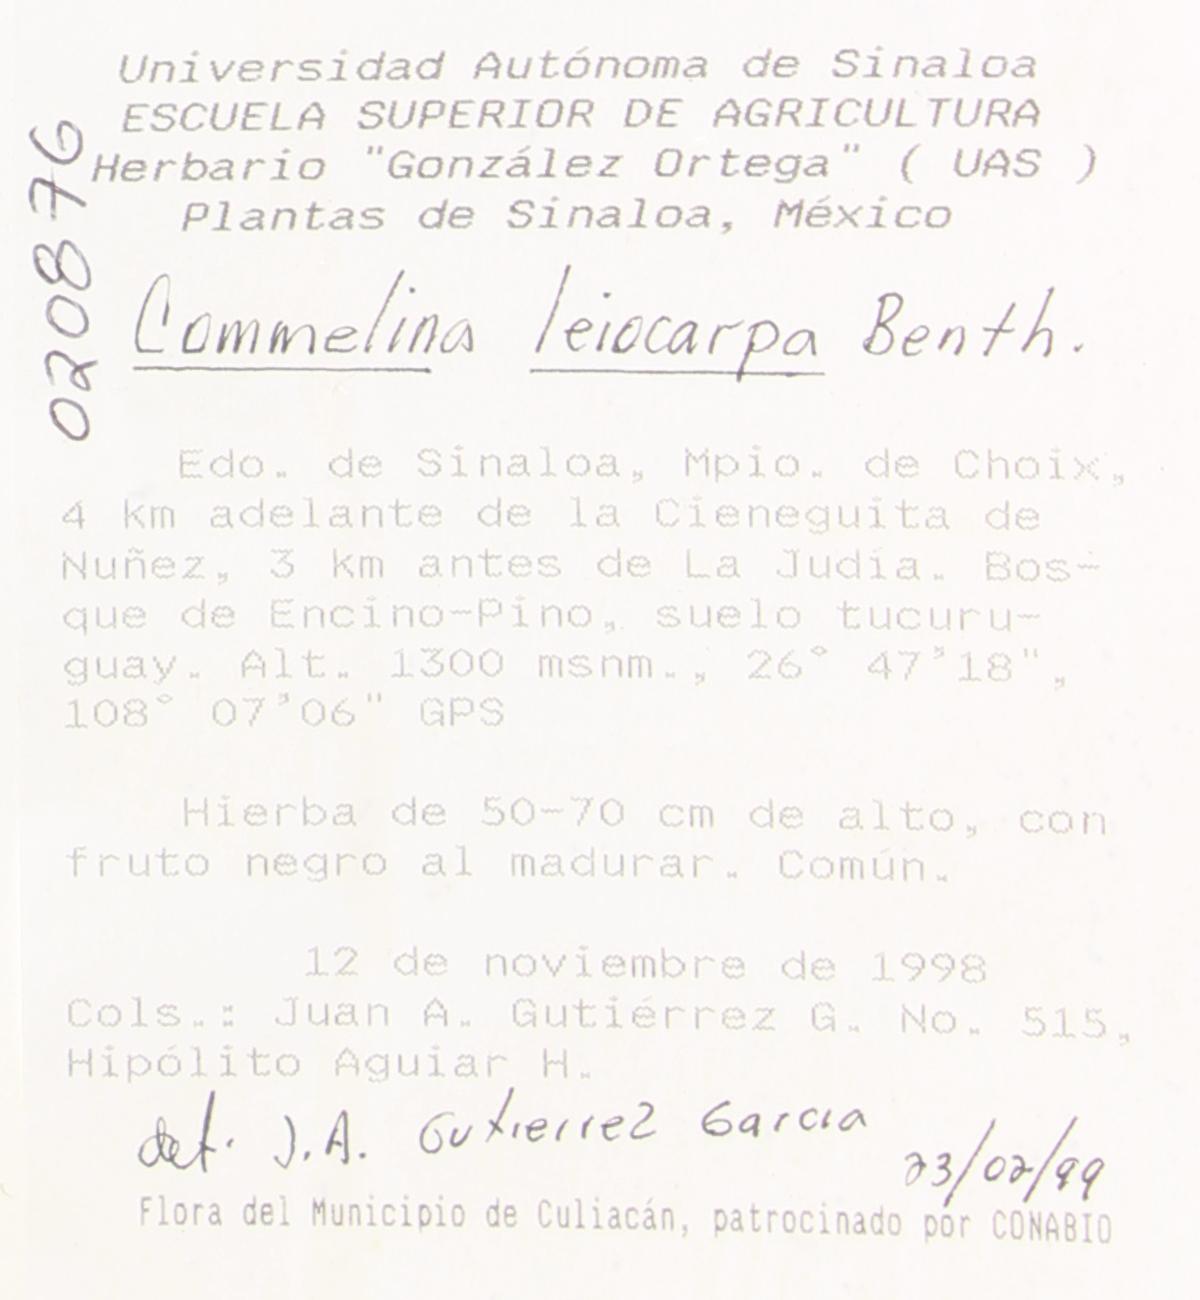 Universidad Autónoma de Sinaloa
ESCUELA SUPERIOR DE AGRICULTURA
Herbario "González Ortega" ( UAS )
Plantas de Sinaloa, México
020876
Commelina leiocarpa Benth.
Edo. de Sinaloa, Mpio. de Choix,
4 km adelante de la Cieneguita de
Nuñez, 3 km antes de La Judía. Bos-
que de Encino-Pino, suelo tucuru-
guay. Alt. 1300 msnm., 26° 47'18",
108° 07'06" GPS
Hierba de 50-70 cm de alto, con
fruto negro al madurar. Común.
12 de noviembre de 1998
Cols.: Juan A. Gutiérrez G. No. 515,
Hipólito Aguiar H.
det. J.A. Gutierrez Garcia
23/02/99
Flora del Municipio de Culiacán, patrocinado por CONABIO